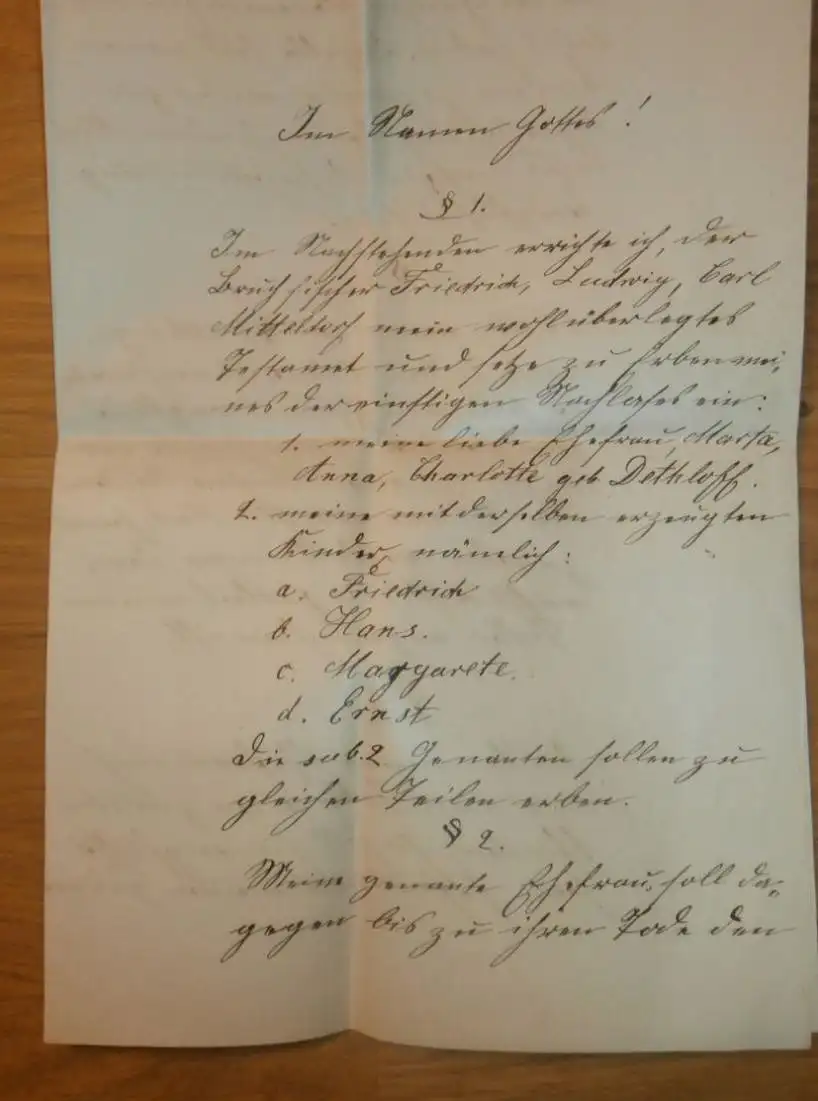 Im Namen Gottes!
§ 1.
Im Nachstehenden errichte ich, der
Bruchfischer Friedrich, Ludwig, Carl
Mitteldorf mein wohlüberlegtes
Testamet und setze zu Erben mei-
nes dereinstigen Nachlases ein:
1. meine liebe Ehefrau, Marta,
Anna, Charlotte geb Dethloff.
2. meine mit derselben erzeugten
Kinder, nämlich:
a. Friedrich
b. Hans.
c. Margarete.
d. Ernst
Die sub. 2 Genanten sollen zu
gleichen Teilen erben.
§ 2.
Meine genante Ehefrau, soll da-
gegen bis zu ihren Tode den